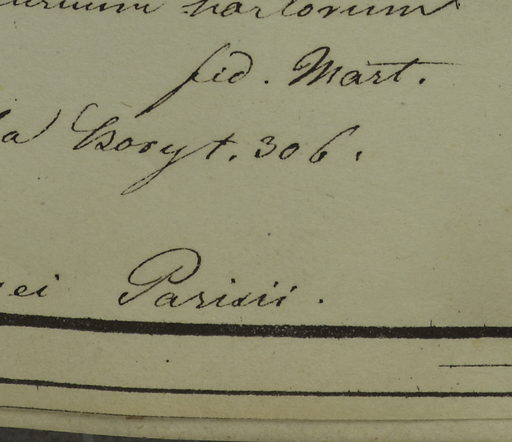 hortorum
fid. Mart.
a Coryt. 306.
ei Parisii.